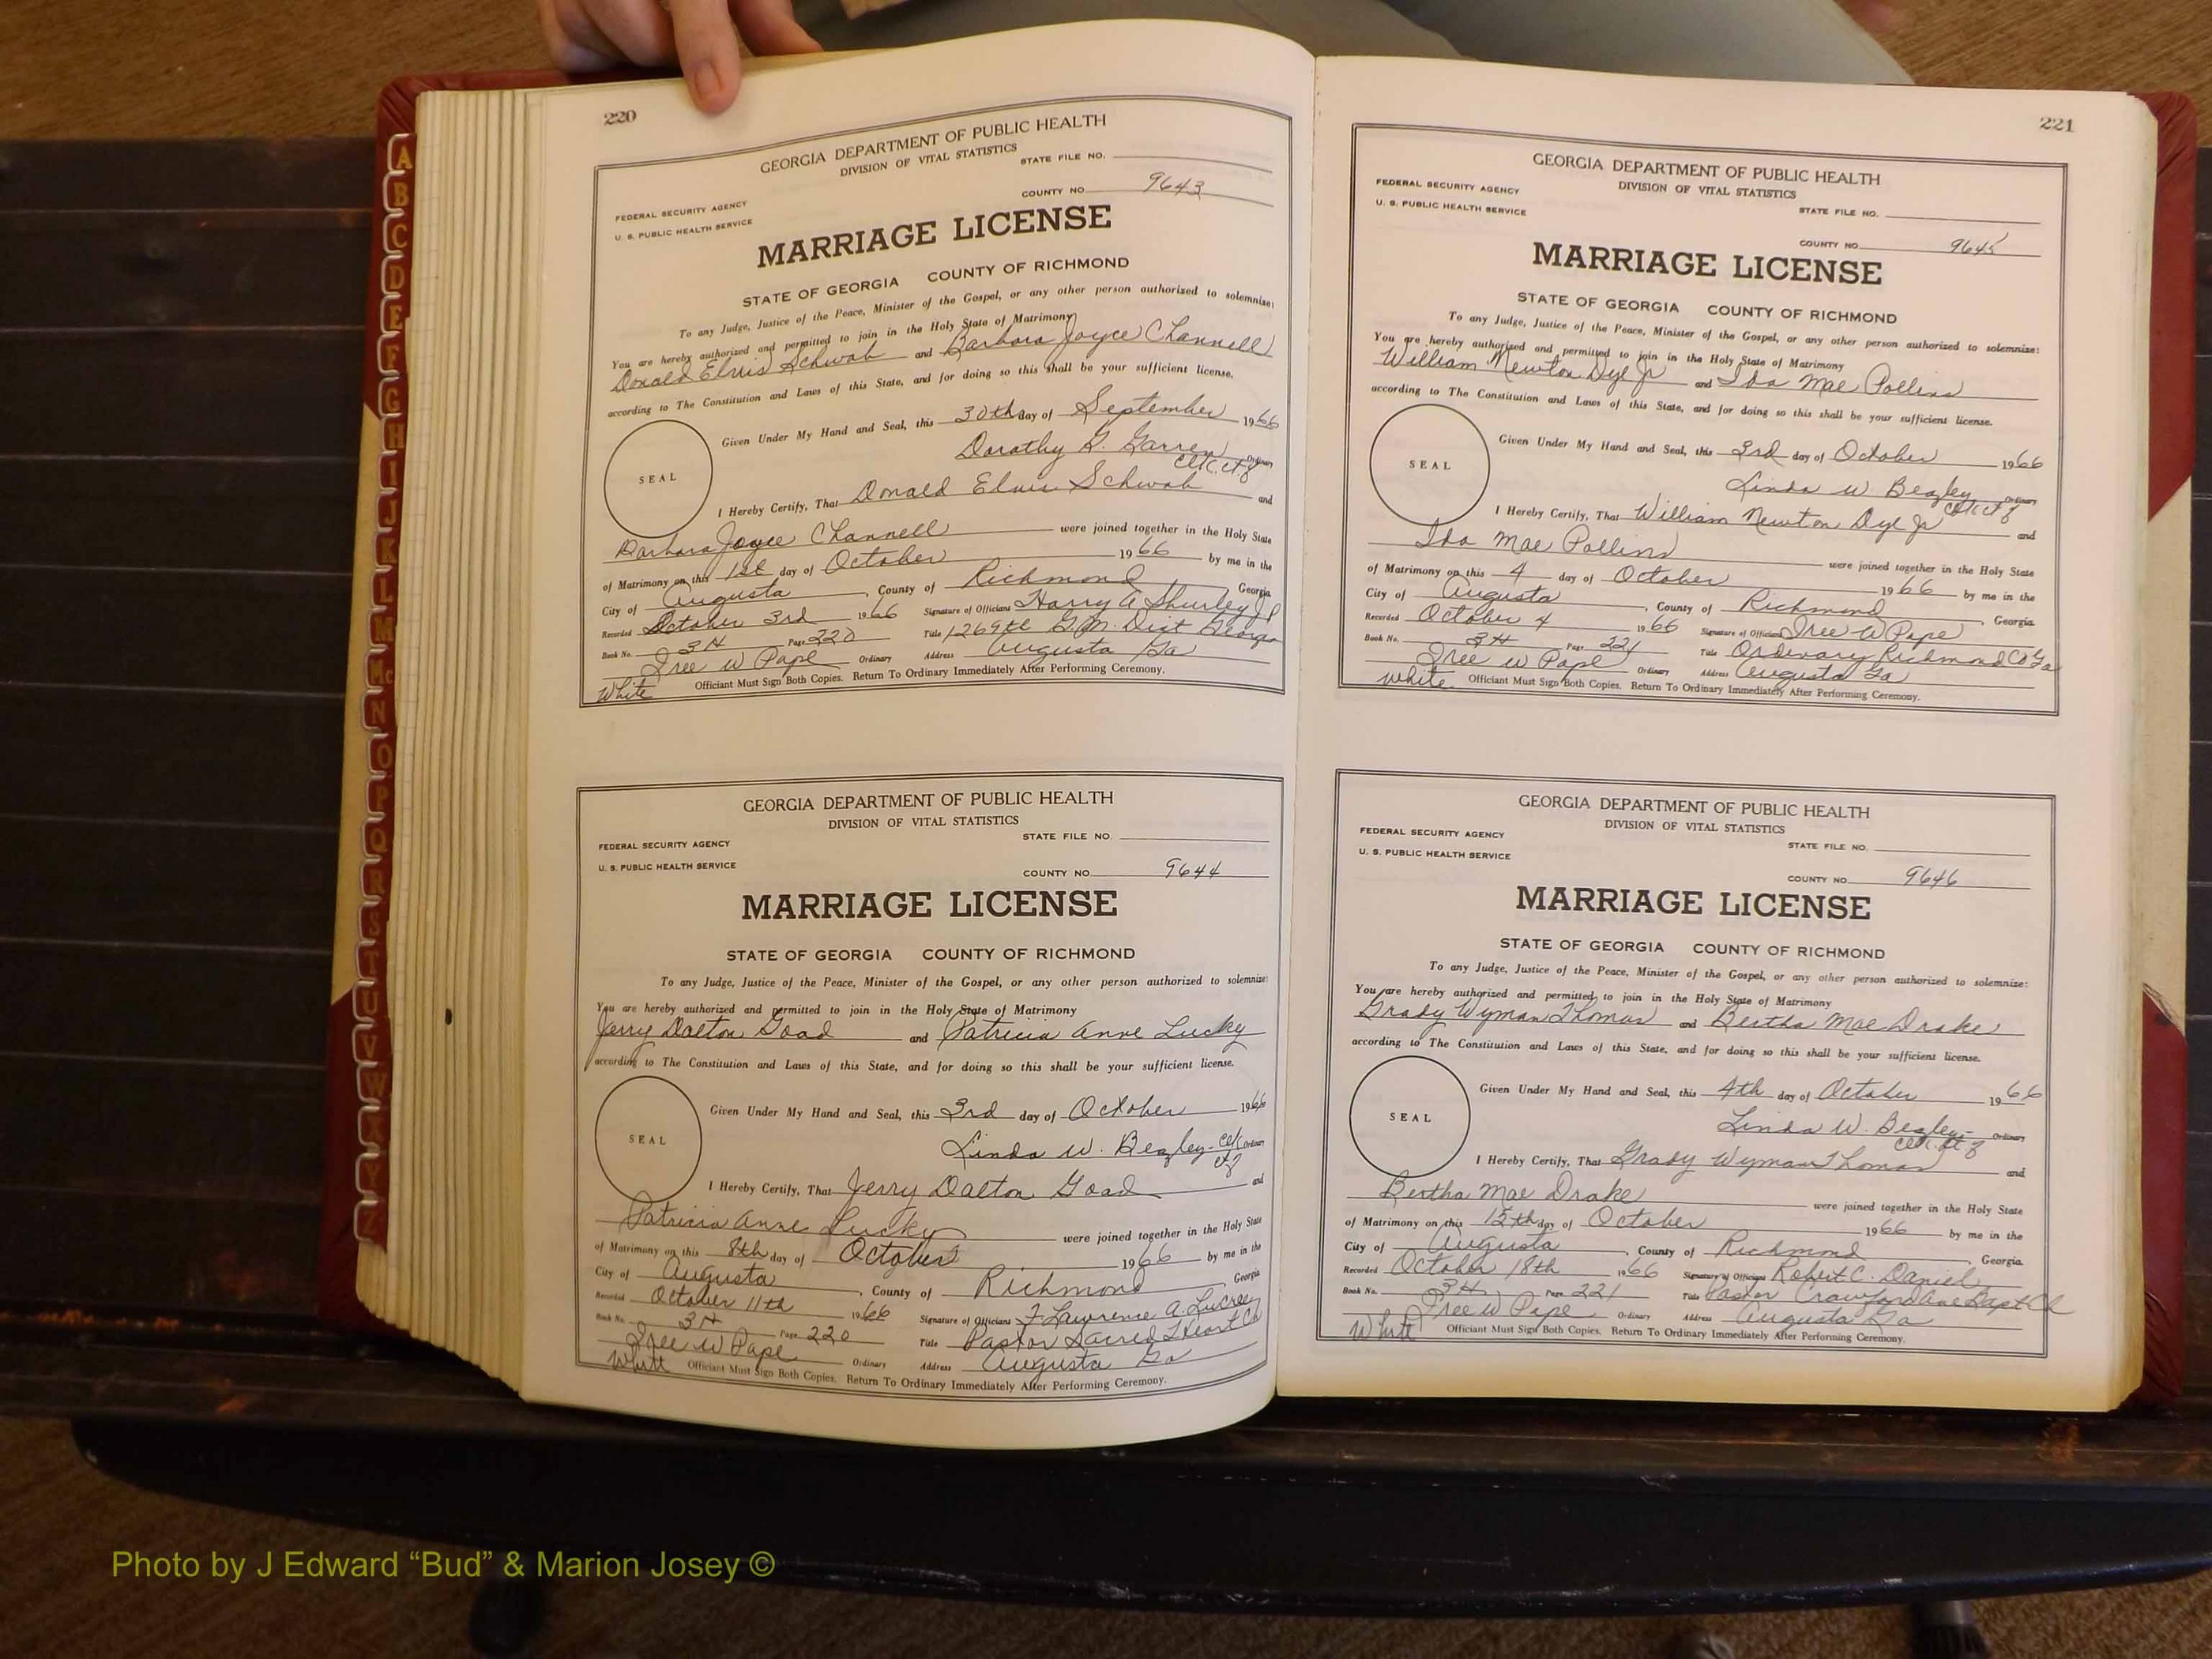 220
GEORGIA DEPARTMENT OF PUBLIC HEALTH
DIVISION OF VITAL STATISTICS
STATE FILE NO.
FEDERAL SECURITY AGENCY
COUNTY NO. 9643
U. S. PUBLIC HEALTH SERVICE
MARRIAGE LICENSE
STATE OF GEORGIA COUNTY OF RICHMOND
To any Judge, Justice of the Peace, Minister of the Gospel, or any other person authorized to solemnize:
You are hereby authorized and permitted to join in the Holy State of Matrimony
Donald Elvis Schwab and Barbara Joyce Channell
according to The Constitution and Laws of this State, and for doing so this shall be your sufficient license.
Given Under My Hand and Seal, this 30th day of September 1966
Dorothy G. Garren Ordinary
SEAL
I Hereby Certify, That Donald Elvis Schwab and
Barbara Joyce Channell were joined together in the Holy State
of Matrimony on this 1st day of October 1966 by me in the
City of Augusta, County of Richmond Georgia.
Recorded October 3rd 1966 Signature of Officiant Harry A Shurley JP
Book No. 3H Page 220 Title 1269th G.M. Dist Georgia
Iree W Pape Ordinary Address Augusta Ga
White Officiant Must Sign Both Copies. Return To Ordinary Immediately After Performing Ceremony.
GEORGIA DEPARTMENT OF PUBLIC HEALTH
DIVISION OF VITAL STATISTICS
STATE FILE NO.
FEDERAL SECURITY AGENCY
U. S. PUBLIC HEALTH SERVICE
COUNTY NO. 9644
MARRIAGE LICENSE
STATE OF GEORGIA COUNTY OF RICHMOND
To any Judge, Justice of the Peace, Minister of the Gospel, or any other person authorized to solemnize:
You are hereby authorized and permitted to join in the Holy State of Matrimony
Jerry Dalton Goad and Patricia Anne Lucky
according to The Constitution and Laws of this State, and for doing so this shall be your sufficient license.
Given Under My Hand and Seal, this 3rd day of October 1966
Linda W. Beazley - Ordinary
SEAL
I Hereby Certify, That Jerry Dalton Goad and
Patricia Anne Lucky were joined together in the Holy State
of Matrimony on this 8th day of October 1966 by me in the
City of Augusta, County of Richmond, Georgia
Recorded October 11th 1966 Signature of Officiant Lawrence A.
Book No. 3H Page 220 Title Pastor Sacred Heart Ch
Iree W Pape Ordinary Address Augusta Ga
White Officiant Must Sign Both Copies. Return To Ordinary Immediately After Performing Ceremony.
221
GEORGIA DEPARTMENT OF PUBLIC HEALTH
DIVISION OF VITAL STATISTICS
FEDERAL SECURITY AGENCY
U. S. PUBLIC HEALTH SERVICE
STATE FILE NO.
COUNTY NO. 9645
MARRIAGE LICENSE
STATE OF GEORGIA COUNTY OF RICHMOND
To any Judge, Justice of the Peace, Minister of the Gospel, or any other person authorized to solemnize:
You are hereby authorized and permitted to join in the Holy State of Matrimony
William Newton Dye Jr and Ida Mae Pollins
according to The Constitution and Laws of this State, and for doing so this shall be your sufficient license.
Given Under My Hand and Seal, this 3rd day of October 1966
Linda W Beazley Ordinary
SEAL
I Hereby Certify, That William Newton Dye Jr and
Ida Mae Pollins were joined together in the Holy State
of Matrimony on this 4 day of October 1966 by me in the
City of Augusta, County of Richmond, Georgia.
Recorded October 4 1966 Signature of Officiant Iree W Pape
Book No. 3H Page 221 Title Ordinary Richmond Co Ga
Iree W Pape Ordinary Address Augusta Ga
White Officiant Must Sign Both Copies. Return To Ordinary Immediately After Performing Ceremony.
GEORGIA DEPARTMENT OF PUBLIC HEALTH
DIVISION OF VITAL STATISTICS
FEDERAL SECURITY AGENCY
STATE FILE NO.
U. S. PUBLIC HEALTH SERVICE
COUNTY NO. 9646
MARRIAGE LICENSE
STATE OF GEORGIA COUNTY OF RICHMOND
To any Judge, Justice of the Peace, Minister of the Gospel, or any other person authorized to solemnize:
You are hereby authorized and permitted to join in the Holy State of Matrimony
Grady Wyman Thomas and Bertha Mae Drake
according to The Constitution and Laws of this State, and for doing so this shall be your sufficient license.
Given Under My Hand and Seal, this 4th day of October 1966
Linda W. Beazley - Ordinary
SEAL
I Hereby Certify, That Grady Wyman Thomas and
Bertha Mae Drake were joined together in the Holy State
of Matrimony on this 15th day of October 1966 by me in the
City of Augusta, County of Richmond, Georgia.
Recorded October 18th 1966 Signature of Officiant Robert C. Daniel
Book No. 3H Page 221 Title Pastor Crawford Ave Bapt Ch
Iree W Pape Ordinary Address Augusta Ga
White Officiant Must Sign Both Copies. Return To Ordinary Immediately After Performing Ceremony.
A
B
C
D
E
F
G
H
I
J
K
L
M
Mc
N
O
P
Q
R
S
T
U
V
W
X
Y
Z
Photo by J Edward “Bud” & Marion Josey ©